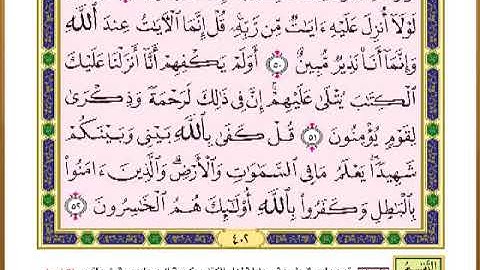 لَوْلَآ أُنزِلَ عَلَيْهِ ءَايَٰتٌ مِّن رَّبِّهِۦ ۖ قُلْ إِنَّمَا ٱلْءَايَٰتُ عِندَ ٱللَّهِ
وَإِنَّمَآ أَنَا۠ نَذِيرٌ مُّبِينٌ ٥٠ أَوَلَمْ يَكْفِهِمْ أَنَّآ أَنزَلْنَا عَلَيْكَ
ٱلْكِتَٰبَ يُتْلَىٰ عَلَيْهِمْ ۚ إِنَّ فِى ذَٰلِكَ لَرَحْمَةً وَذِكْرَىٰ
لِقَوْمٍ يُؤْمِنُونَ ٥١ قُلْ كَفَىٰ بِٱللَّهِ بَيْنِى وَبَيْنَكُمْ
شَهِيدًا ۖ يَعْلَمُ مَا فِى ٱلسَّمَٰوَٰتِ وَٱلْأَرْضِ ۗ وَٱلَّذِينَ ءَامَنُوا۟
بِٱلْبَٰطِلِ وَكَفَرُوا۟ بِٱللَّهِ أُو۟لَٰٓئِكَ هُمُ ٱلْخَٰسِرُونَ ٥٢
٤٠٢